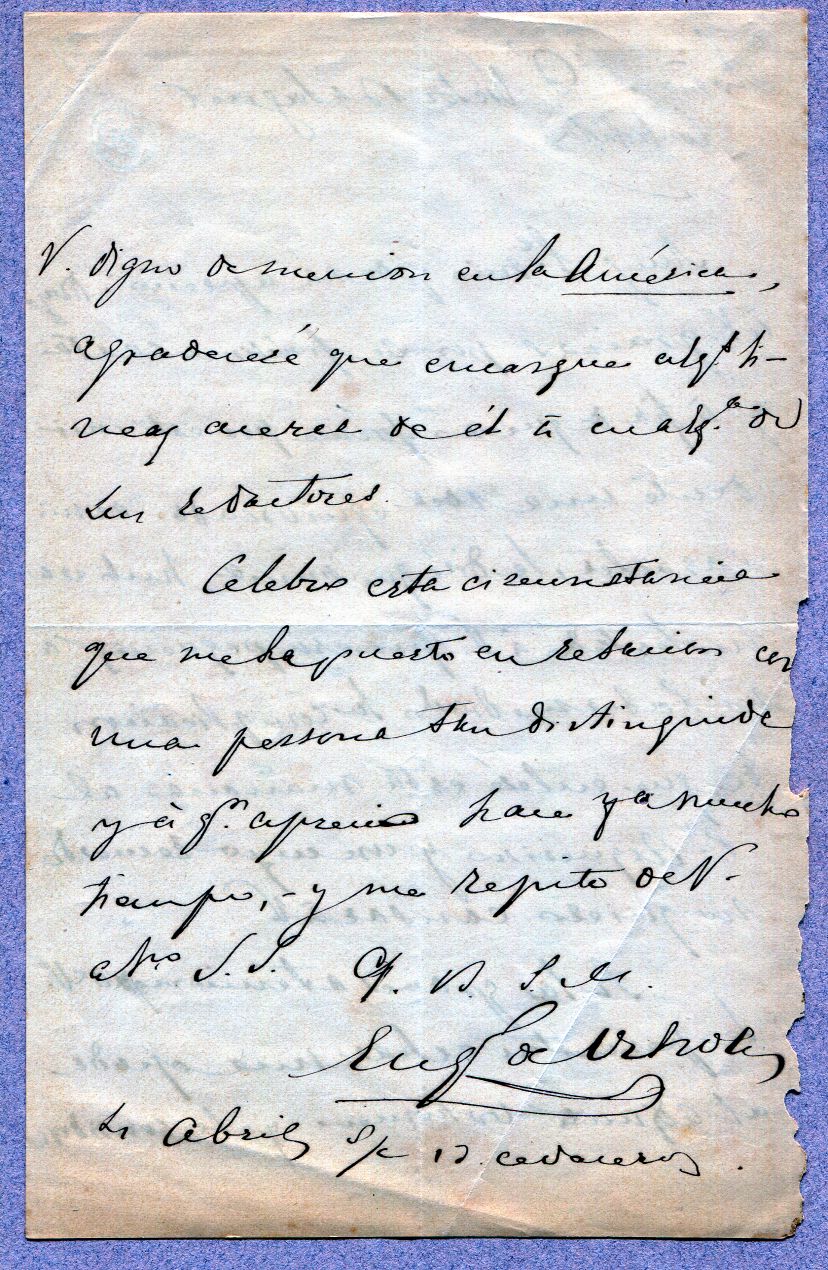 V. digno de mencion en la América,
agradeceré que encargue alg.s lí-
neas acerca de él à cualq.a de
sus redactores.
Celebro esta circunstancia
que me ha puesto en relacion con
una persona tan distinguida
y à q.n aprecio hace ya mucho
tiempo, - y me repito de V.
at.o S. S. Q. B. S. M.
Eug.o de
Abril S/c 12. cedaceros.